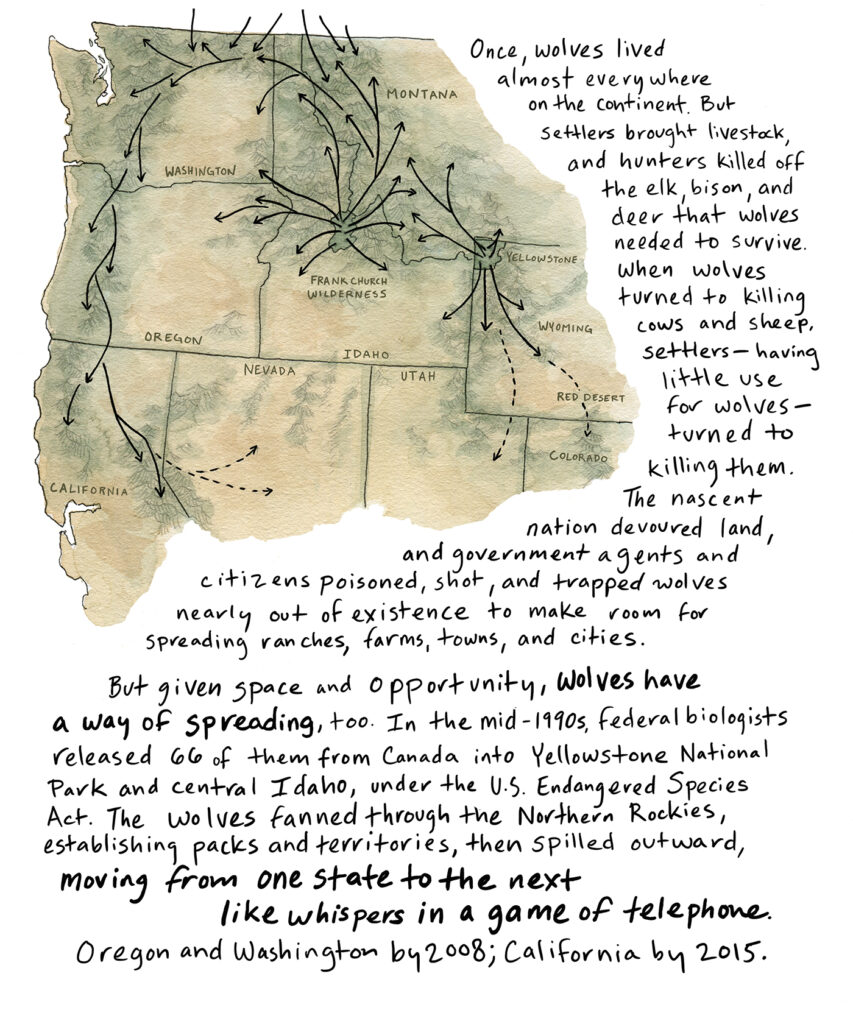 Once, wolves lived
almost everywhere
on the continent. But
settlers brought livestock,
and hunters killed off
the elk, bison, and
deer that wolves
needed to survive.
When wolves
turned to killing
cows and sheep,
settlers—having
little use
for wolves—
turned to
killing them.
The nascent
nation devoured land,
and government agents and
citizens poisoned, shot, and trapped wolves
nearly out of existence to make room for
spreading ranches, farms, towns, and cities.
MONTANA
WASHINGTON
YELLOWSTONE
FRANK CHURCH
WILDERNESS
WYOMING
OREGON
IDAHO
NEVADA
UTAH
RED DESERT
COLORADO
CALIFORNIA
But given space and opportunity, wolves have
a way of spreading, too. In the mid-1990s, federal biologists
released 66 of them from Canada into Yellowstone National
Park and central Idaho, under the U.S. Endangered Species
Act. The wolves fanned through the Northern Rockies,
establishing packs and territories, then spilled outward,
moving from one state to the next
like whispers in a game of telephone.
Oregon and Washington by 2008; California by 2015.